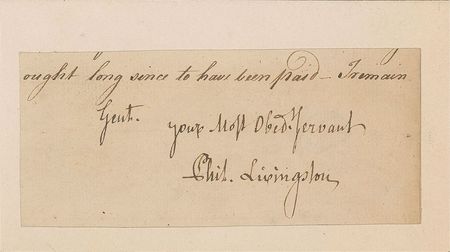 ought long since to have been paid – I remain
Gent.
your Most Obed.t Servant
Phil. Livingston